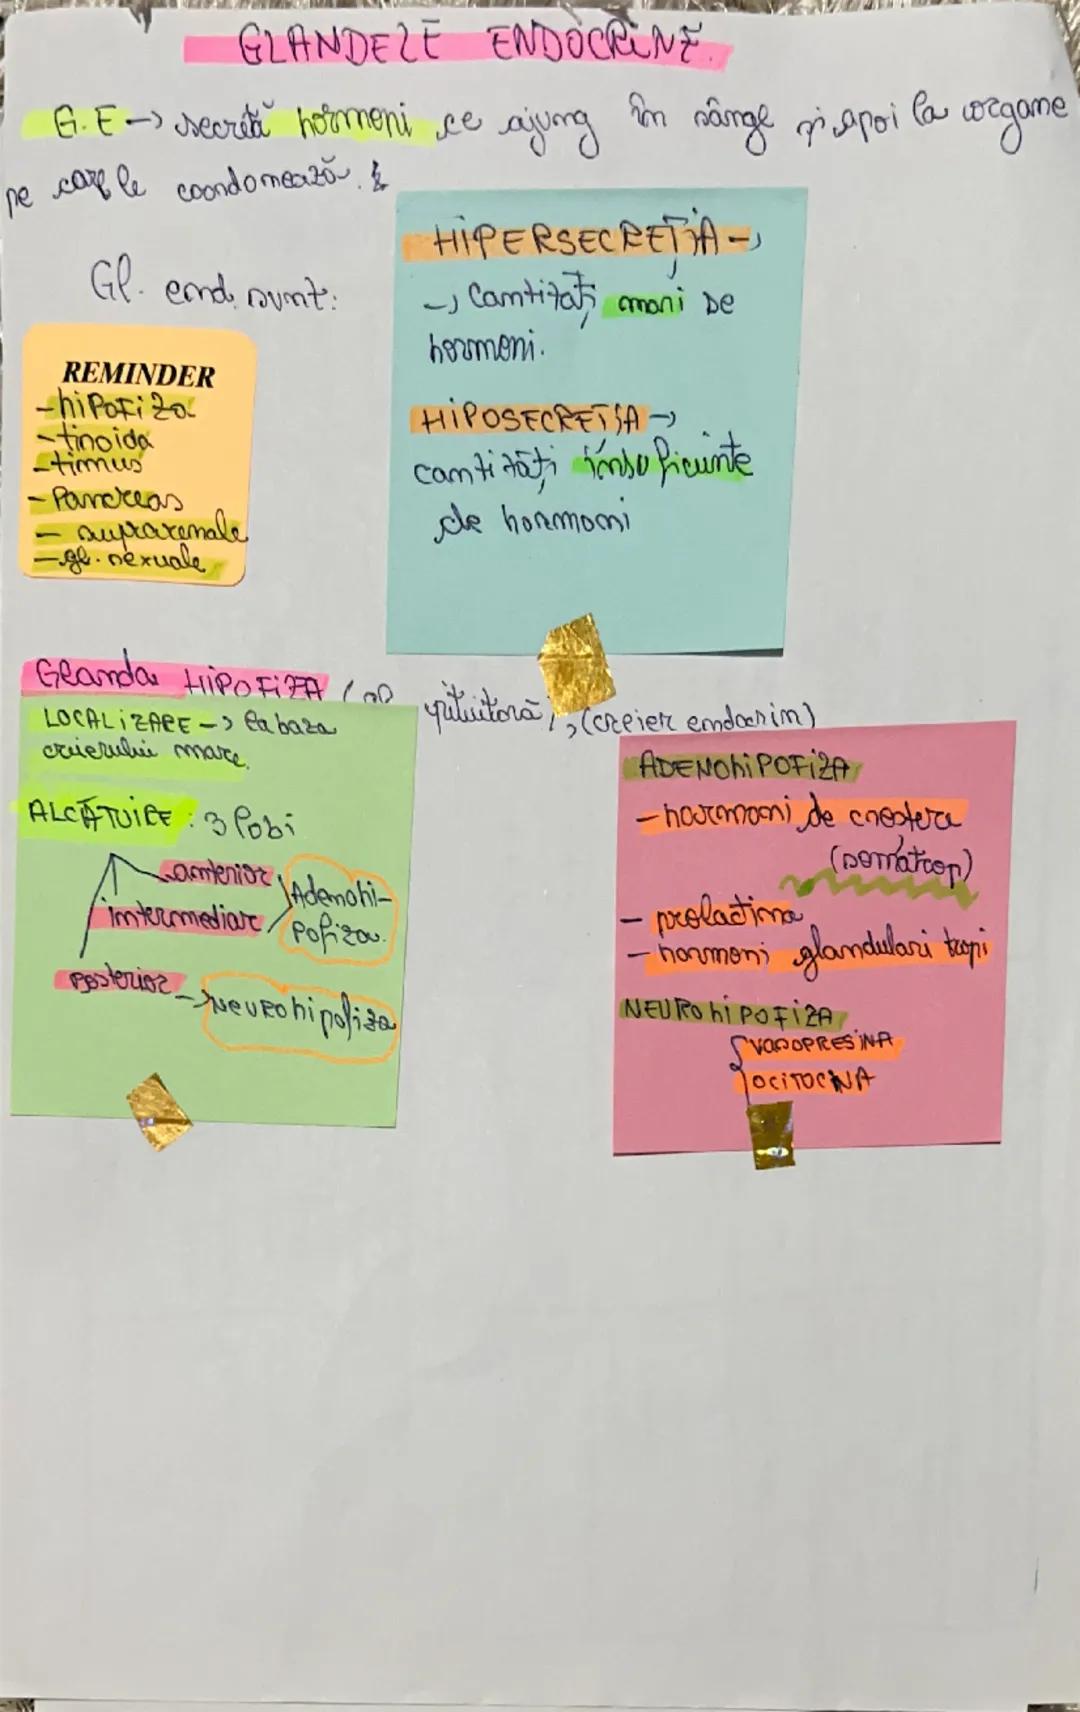 GLANDELE ENDOCRINE.
G.E -> secretă hormoni ce ajung în sânge și apoi la organe
pe care le coordonează.
Gl. end. sunt:
REMINDER
- hipofiza
- tiroida
- timus
- Pancreas
- suprarenale
- gl. sexuale
HIPERSECREȚIA ->
-> Cantități mari de
hormoni.
HIPOSECREȚIA ->
cantități insuficiente
de hormoni
Glanda HIPOFIZA (gl. pituitară), (creier endocrin)
LOCALIZARE -> la baza
creierului mare.
ALCĂTUIRE: 3 lobi
anterior
intermediar
Adenohi-
pofiza.
posterior -> Neurohipofiza
ADENOHIPOFIZA
- hormoni de creștere
(somatrop)
- prolactina
- hormoni glandulari tropi
NEUROHIPOFIZA
VASOPRESINA
OCITOCINA